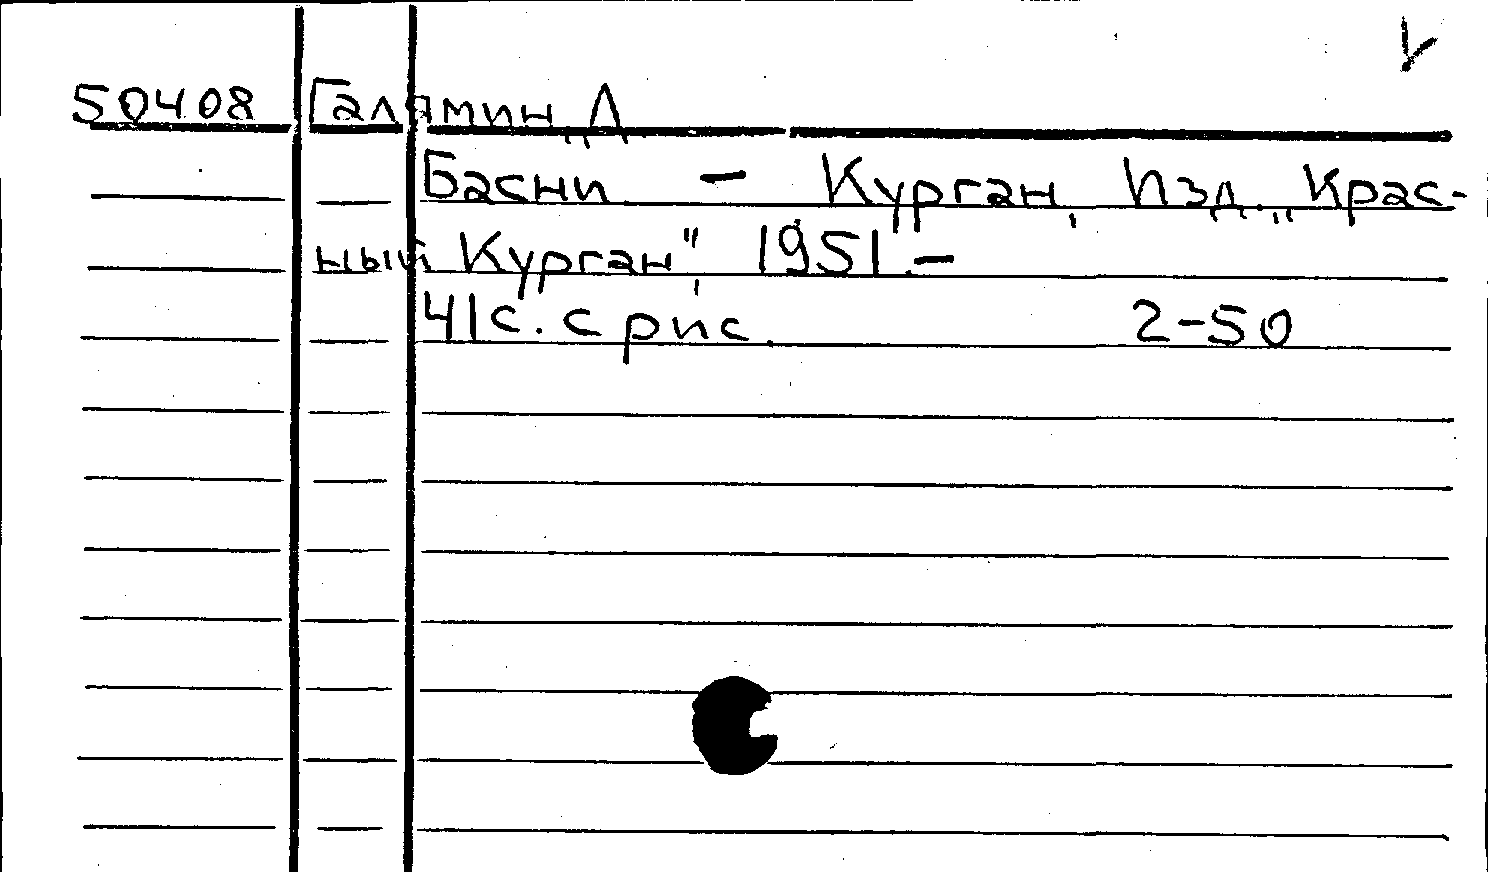 50408 Галямин, Д
Басни – Курган, Изд. „Крас-
ный Курган", 1951.–
41с. с рис. 2–50